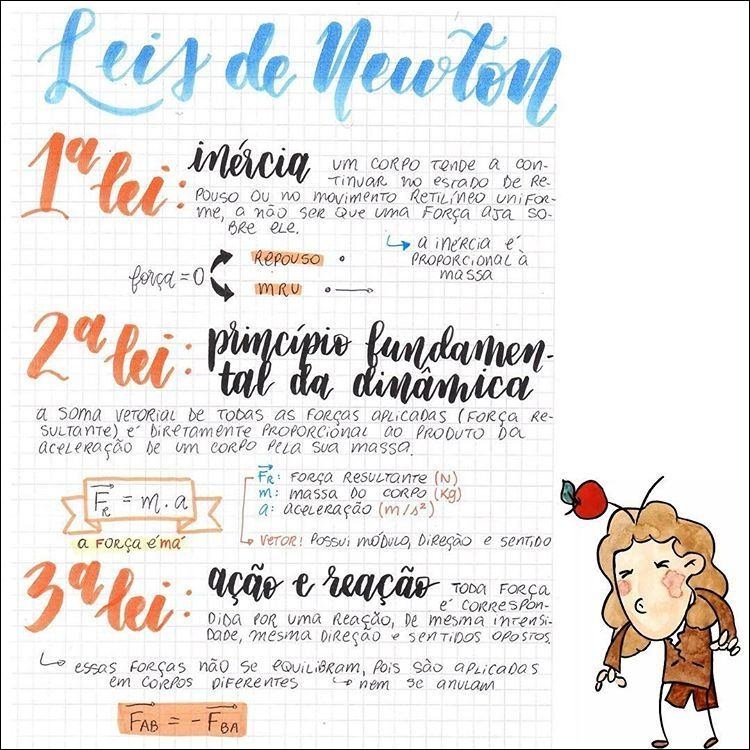 Leis de Newton
1ª lei: inércia UM CORPO TENDE A CON-
TINUAR NO ESTADO DE RE-
POUSO OU NO MOVIMENTO RETILÍNEO UNIFOR-
ME, A NÃO SER QUE UMA FORÇA AJA SO-
BRE ELE.
força = 0
REPOUSO
MRU
A INÉRCIA É
PROPORCIONAL À
MASSA
2ª lei: princípio fundamen-
tal da dinâmica
A SOMA VETORIAL DE TODAS AS FORÇAS APLICADAS (FORÇA RE-
SULTANTE) É DIRETAMENTE PROPORCIONAL AO PRODUTO DA
ACELERAÇÃO DE UM CORPO PELA SUA MASSA.
F⃗R = m . a
A FORÇA É MÁ
F⃗R: FORÇA RESULTANTE (N)
m: MASSA DO CORPO (Kg)
a: ACELERAÇÃO (m/s²)
VETOR! POSSUI MÓDULO, DIREÇÃO E SENTIDO
3ª lei: ação e reação TODA FORÇA
É CORRESPON-
DIDA POR UMA REAÇÃO, DE MESMA INTENSI-
DADE, MESMA DIREÇÃO E SENTIDOS OPOSTOS
ESSAS FORÇAS NÃO SE EQUILIBRAM, POIS SÃO APLICADAS
EM CORPOS DIFERENTES → NEM SE ANULAM
F⃗AB = -F⃗BA